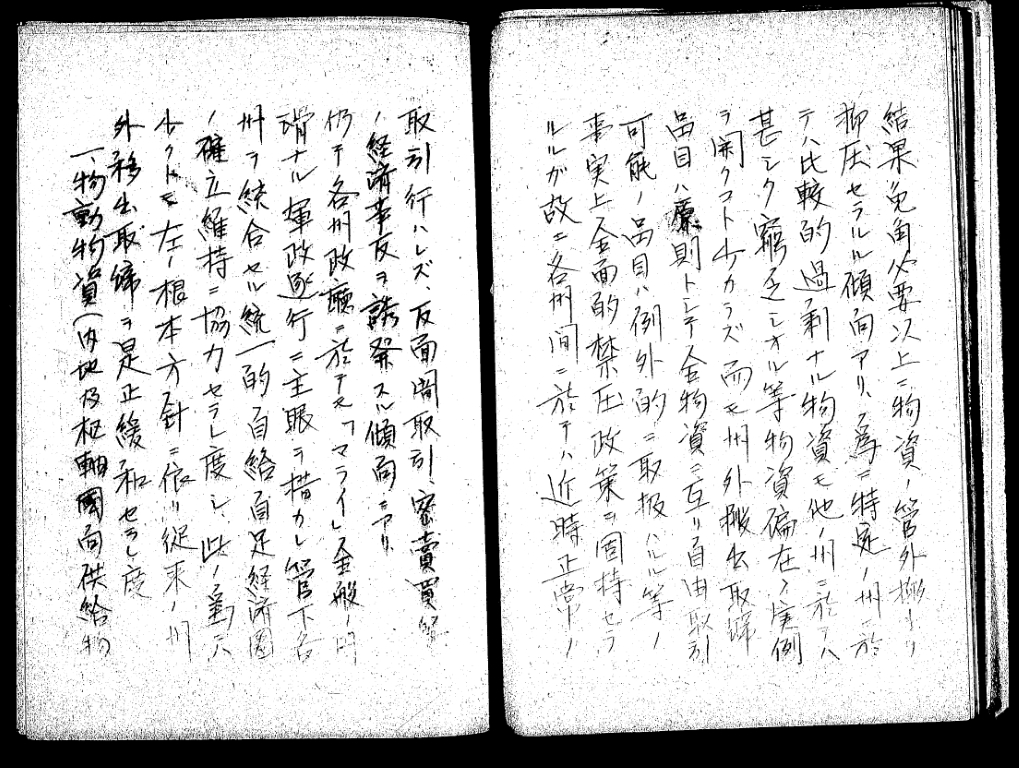 結果兎角必要以上ニ物資ノ管外搬出ヲ
抑圧セラルル傾向アリ、為ニ特定ノ州ニ於
テハ比較的過剰ナル物資モ他ノ州ニ於テハ
甚シク窮乏シオル等物資偏在ノ実例
ヲ聞クコト少カラズ而モ州外搬出取締
品目ハ原則トシテ全物資ニ亙リ自由取引
可能ノ品目ハ例外的ニ取扱ハルル等ノ
事実上全面的禁圧政策ヲ固持セラ
ルルガ故ニ各州間ニ於テハ近時正常ノ
取引行ハレズ、反面闇取引、密賣買等
ノ経済事反ヲ誘発スル傾向ニアリ
仍テ各州政廳ニ於テモ「マライ」全般ノ円
滑ナル軍政遂行ニ主眼ヲ措カレ管下各
州ヲ統合セル統一的自給自足経済圏
ノ確立維持ニ協力セラレ度シ、此ノ為ニハ
少クトモ左ノ根本方針ニ依リ従来ノ州
外移出取締ヲ是正緩和セラレ度
一、物動物資(内地及枢軸國向供給物